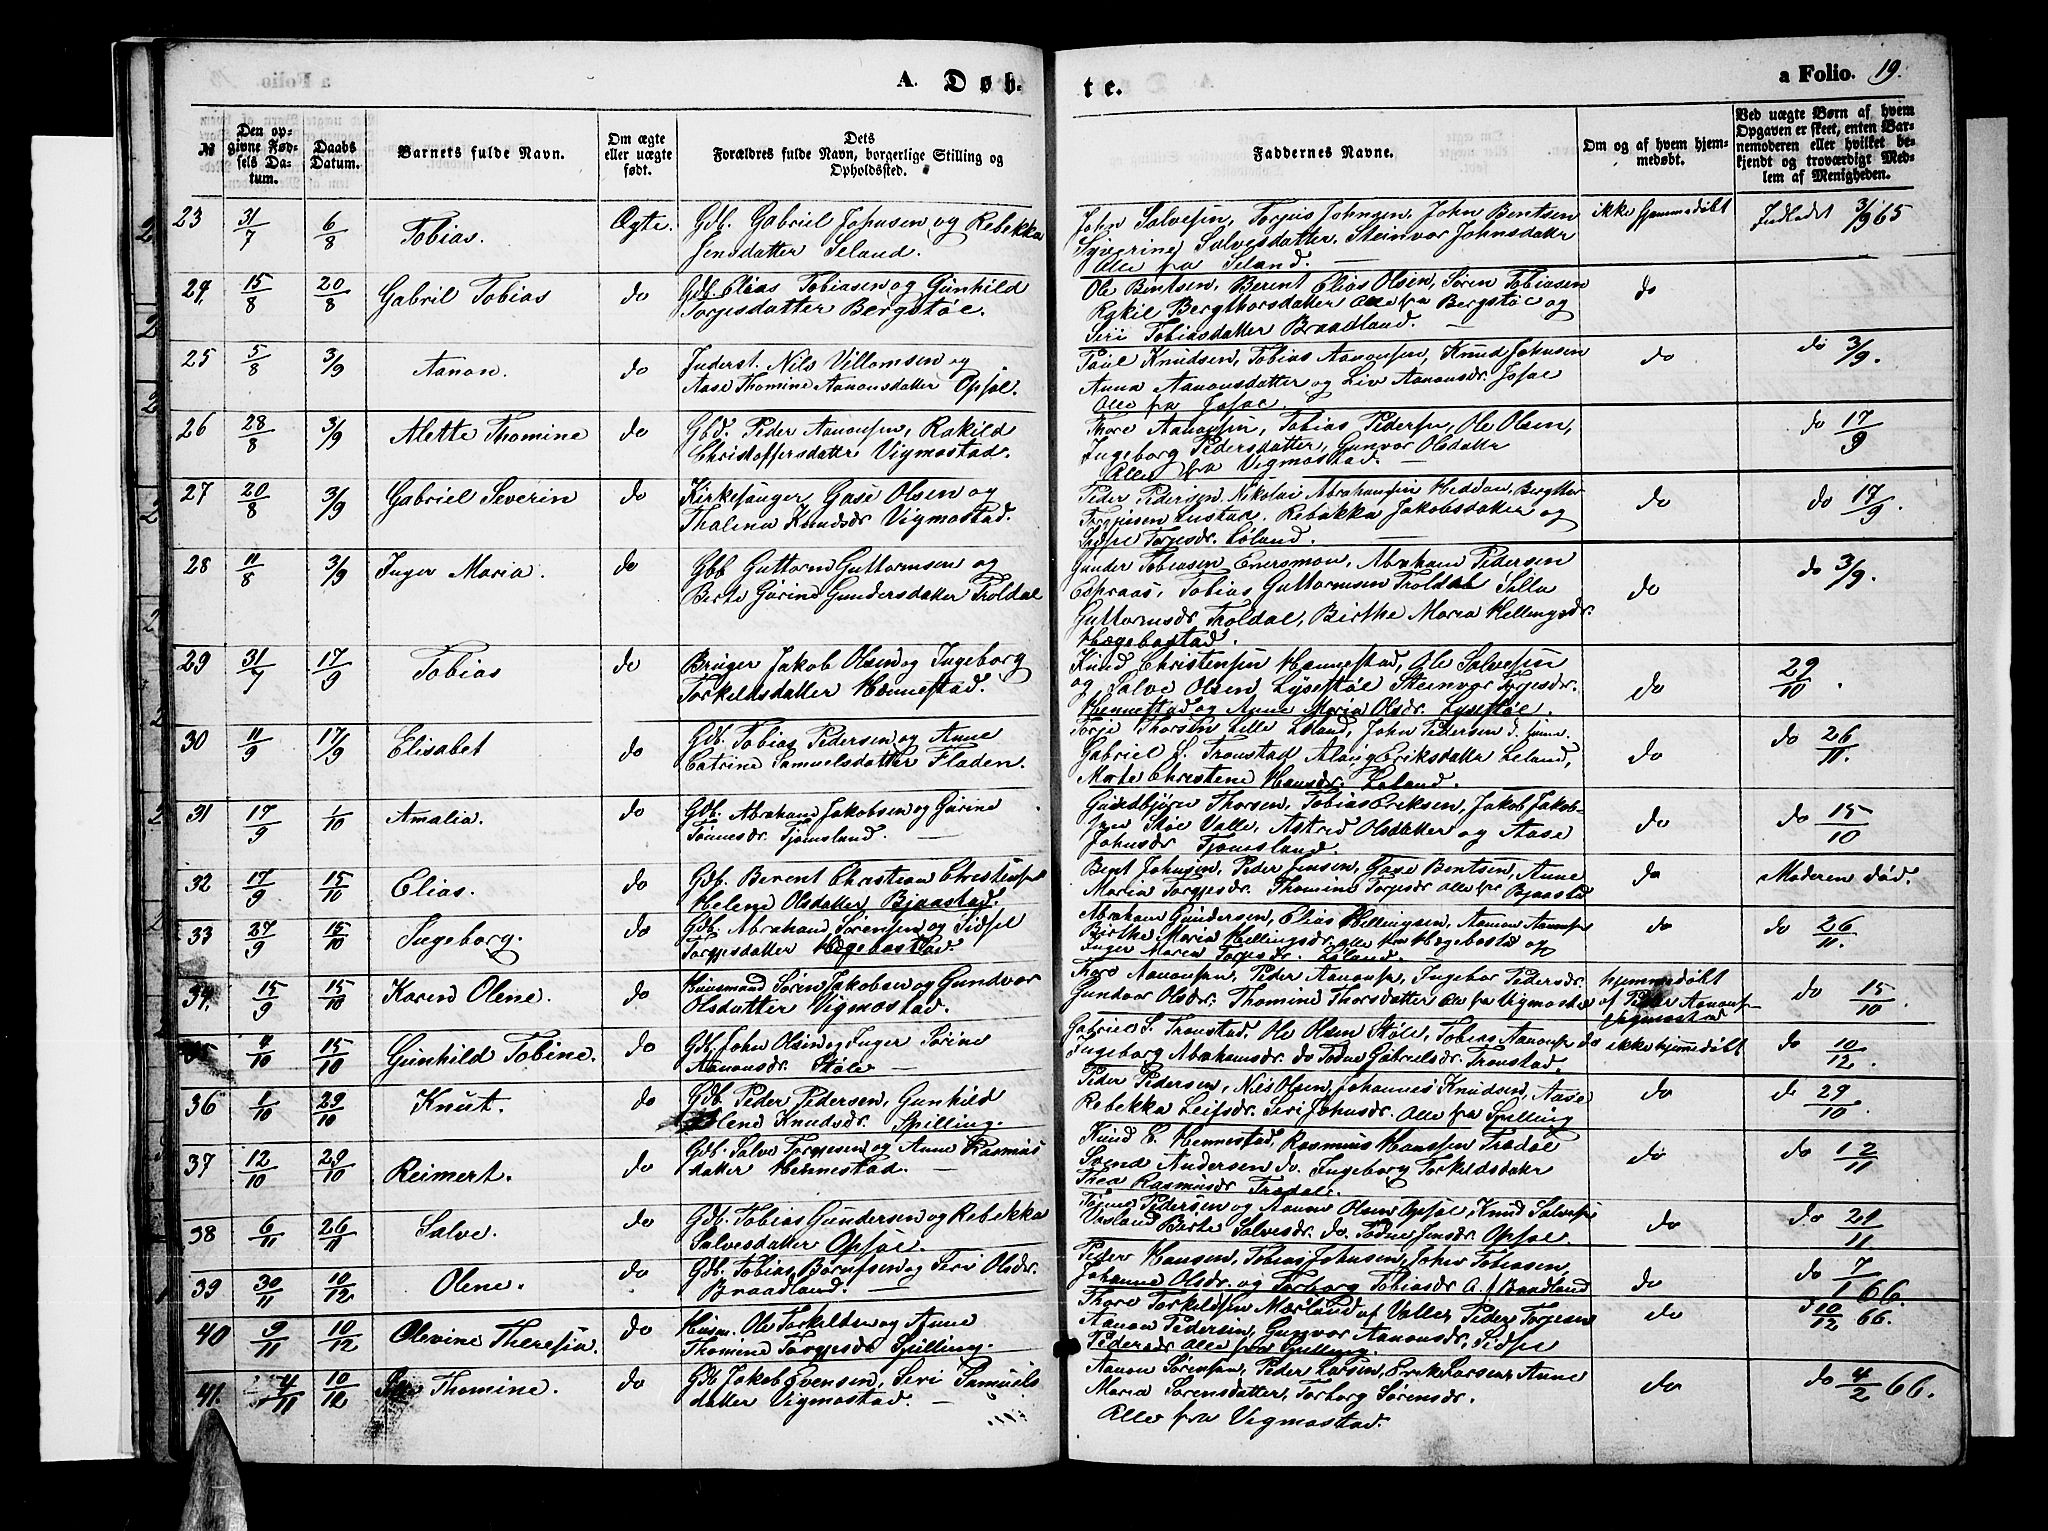 a Folio.
A. Døb-
te.
a Folio. 19.
№
Den op-
givne Fød-
sels Da-
tum.
Daabs
Datum.
Barnets fulde Navn.
Om ægte
eller uægte
født.
Dets
Forældres fulde Navn, borgerlige Stilling og
Opholdssted.
Faddernes Navne.
Om og af hvem hjem-
medøbt.
Ved uægte Børn af hvem
Opgaven er skeet, enten Bar-
nemoderen eller hvilket be-
kjendt og troværdigt Med-
lem af Menigheden.
23 31/7 6/8 Tobias. Ægte. Gdb. Gabriel Johnsen og Rebekka
Jensdatter Seland.
John Salvesen, Torjus Johnsen, John Bentsen
Syverine Salvesdatter, Steinvor Johnsdatter
Alle fra Seland.
ikke hjemmedøbt
Indledet 3/9 65
24 15/8 20/8 Gabril Tobias do Gdb. Elias Tobiasen og Gunhild
Torjesdatter Bergstøl.
Ole Bentsen, Berent Elias Olsen, Søren Tobiasen
Rakil Bergthorsdatter Alle fra Bergstøl og
Seri Tobiasdatter Braadland.
do
25 5/8 3/9 Aanon. do Inderst. Nils Villomsen og
Aase Thomine Aanonsdatter Opsøl.
Paul Knudsen, Tobias Aanonsen, Knud Johnsen
Anna Aanonsdatter og Liv Aanonsdr.
Alle fra
do
do 3/9.
26 28/8 3/9 Alette Thomine do Gbd. Peder Aanonsen, Rakild
Christoffersdatter Vigmostad.
Thore Aanonsen, Tobias Pedersen, Ole Olsen,
Ingeborg Pedersdatter, Gunvor Olsdatter
Alle fra Vigmostad.
do 17/9
27 20/8 3/9 Gabriel Severin do Kirkesanger Gase Olsen og
Thalena Knudsdr. Vigmostad.
Peder Pedersen, Nikolai Abrahamsen Heddan, Bergthor
Torgjesen Rebekka Jakobsdatter og
Sidsel Torjesdr. Løland.
do
do 17/9.
28 11/8 3/9 Inger Maria. do Gbb Guttorm Guttormsen og
Berte Gurine Gundersdatter Troldal
Gunder Tobiasen Abraham Pedersen
Tobias Guttormsen Troldal
Guttormsdr. Troldal, Birthe Maria Hellingsdr.
Hægebostad.
do
do 3/9.
29 31/7 17/9 Tobias do Bruger Jakob Olsen og Ingeborg
Torkildsdatter Hennestad.
Knud Christensen Hennestad, Ole Salvesen
og Salve Olsen Lysestøl Steinvor Torjesdr.
Hennestad og Anne Maria Olsdr. Lysestøl.
do
29/10.
30 11/9 17/9 Elisabet do Gdb. Tobias Pedersen og Anne
Catrine Samuelsdatter Fladen.
Torje Thorsen Lille Løland, John Pedersen
Gabriel S. Tronstad Eriksdatter Leland,
Marte Christene Hansdr. Løland.
do
do 26/11.
31 17/9 1/10 Amalia. do Gdb. Abraham Jakobsen og Gurine
Tønnesdr. Tjomsland.
Gudbjørn Thorsen, Tobias Eriksen, Jakob Jakob-
sen Støl Valle, Astrid Olsdatter og Aase
Johnsdr Tjomsland.
do
do 15/10
32 17/9 15/10 Elias. do Gdb. Berent Christian Christensen
Helene Olsdatter Bjaastad.
Bent Johnsen, Peder Jensen, Gase Bentsen, Anne
Maria Torgjesdr. Thomine Torjesdr Alle fra Bjaastad
do
Moderen død.
33 27/9 15/10 Ingeborg. do Gdb. Abraham Sørensen og Sidsel
Torgjesdatter Hægebostad.
Abraham Gundersen, Elias Hellingsen, Aanon Aanonsen
Birthe Maria Hellingsdr. alle fra Hægebostad og
Inger Maria Torjesdr. Løland.
do
do 26/11.
34. 15/9 15/10 Karen Olene. do Huusmand Søren Jakobsen og Gundvor
Olsdatter Vigmostad.
Thore Aanonsen, Peder Aanonsen, Ingebor Pedersdr.
Gundvor Olsdr. Thomine Thorsdatter Alle fra Vigmostad
hjemmedøbt
af Peder Aanonsen
Vigmostad
do 15/10
35 4/10 15/10 Gunhild Tobine. do Gdb. John Olsen og Inger Sørine
Aanonsdr. Støle
Gabriel S. Tronstad. Ole Olsen Støle, Tobias Aanonsen do
Ingeborg Abrahamsdr. do Todne Gabrielsdr. Tronstad.
ikke hjemmedøbt
do 10/12.
36 1/10 29/10 Knut. do Gdb. Peder Pedersen, Gunhild
Olene Knudsdr. Spilling.
Peder Pedersen, Nils Olsen, Johannes Knudsen, Aase
Rebekka Leifsdr. Seri Johnsdr. Alle fra Spilling
do
do 29/10.
37 12/10 29/10 Reimert. do Gdb. Salve Torgjesen og Anne Rasmus
datter Hennestad.
Knud C. Hennestad, Rasmus Hansen Trædal
Svend Andersen do. Ingeborg Torkildsdatter
Thea Rasmusdr Trædal.
do
do 12/11
38 6/11 26/11 Salve. do Gdb. Tobias Gundersen og Rebekka
Salvesdatter Opsøl.
Pedersen og Aanon Olsen Opsøl, Knud Salvesen
Berte Salvesdr. do. Todne Jensdr. Opsøl.
do
do 29/11
39 30/11 10/12 Olene. do Gdb. Tobias Børufsen og Seri Olsdr.
Braadland.
Peder Hansen, Tobias Johnsen, John Tobiasen,
Johanne Olsdr. og Torborg Tobiasdr A. f Braadland
do
do 7/1 66.
40 9/11 10/12 Olevine Theresia. do Husm. Ole Torkildsen og Anne
Thomene Torgjesdr Spilling.
Thore Torkildsen Mærland af Valle, Peder Torjesen
Aanon Pedersen, Gunvor Aanonsdr. Sidsel
Pedersdr Alle fra Spilling.
do
d 10/12 66.
41. 4/11 10/12 Thomine. do Gdb Jakob Evensen, Seri Samuels
datter Vigmostad.
Aanon Sørensen, Peder Larsen, Erik Larsen, Anne
Maria Sørensdatter, Torborg Sørensdr.
Alle fra Vigmostad.
do
do 4/2 66.